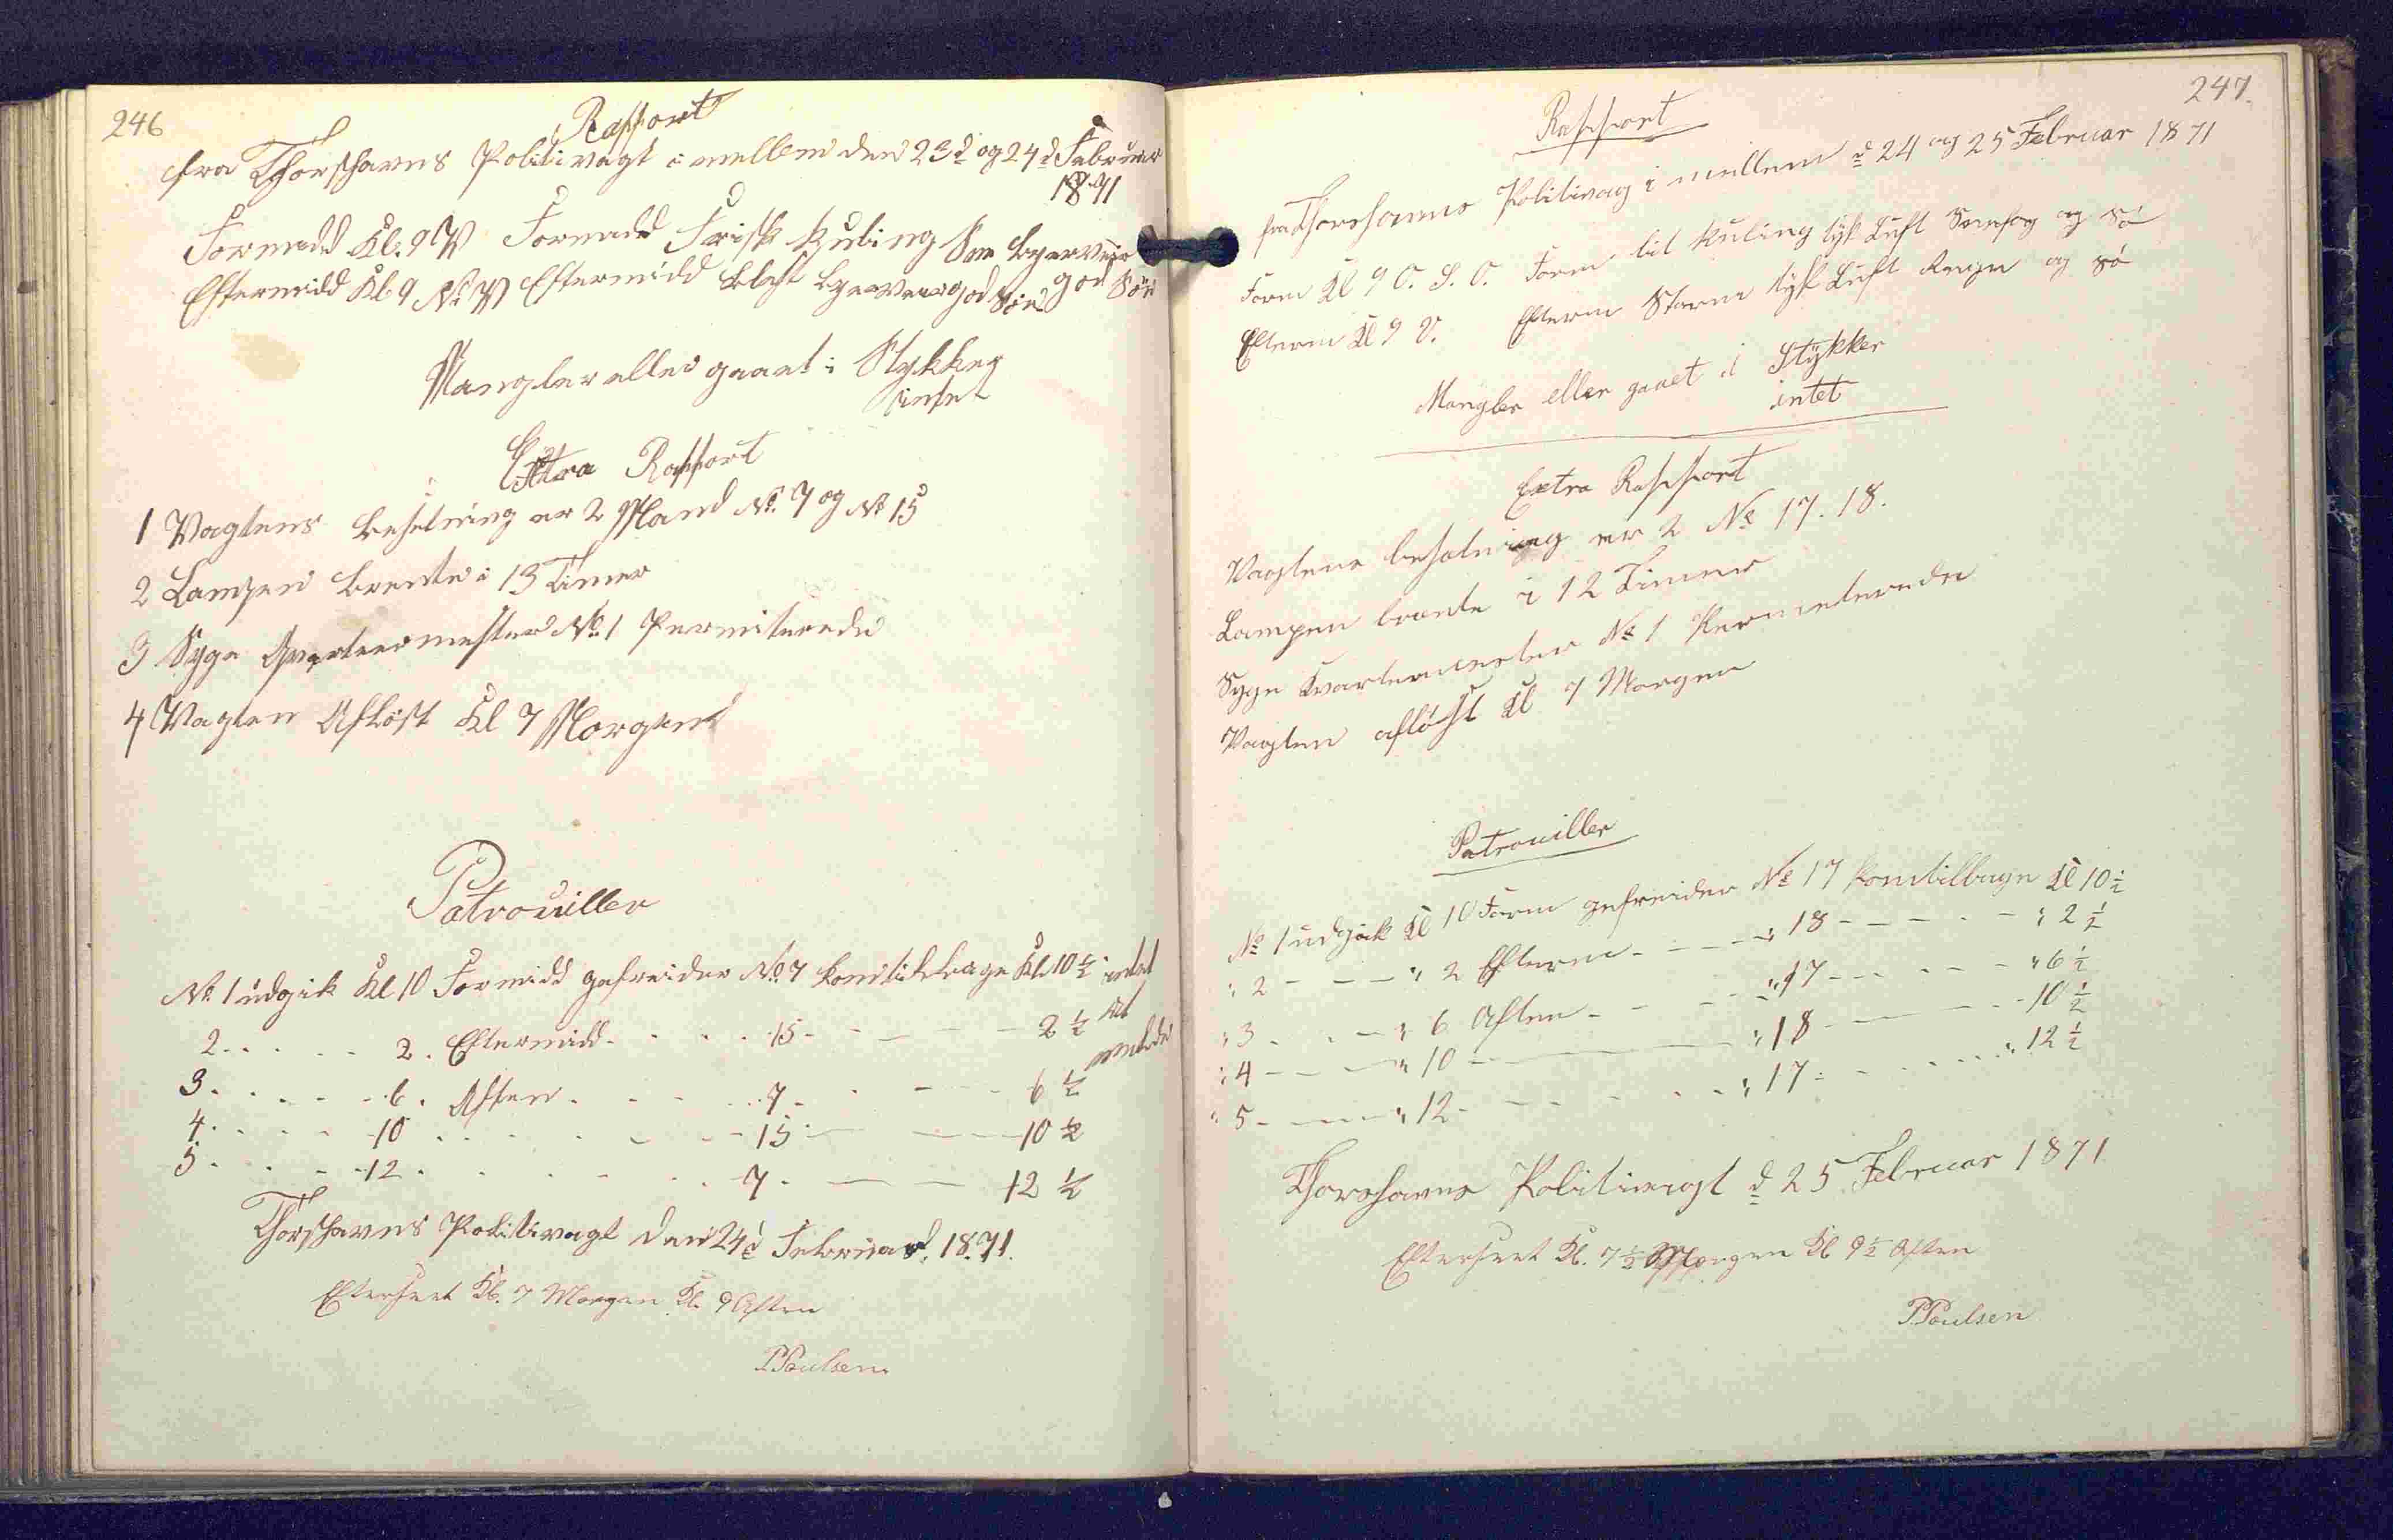 246
Rapport
fra Thorshavns Politivagt i mellem den 23d og 24d Februar
1871
Formidd Kl. 9 V Formidd Frisk Kuling Byeveir
god Søe
Eftermidd Kl 9 N: V Eftermidd Blæst Byeveir god Søe
Mangler eller gaaet i Stykker
intet
Extra Rapport
1 Vagtens Besetning er 2 Mand No. 7 og No 15
2 Lampen brente i 13 Timer
3 Syge Qvarteermester No. 1 Permiterede
4 Vagten Afløst Kl 7 Morgen
Patrouiller
No. 1 udgik Kl 10 Formidd gefreider No. 7 kom tilbage Kl 10 ½ intet
2 . . . . . 2 . Eftermidd . . . . 15 - - - - 2 ½ at
melde
3 . . . . . 6 . Aften . . . . 7 - - - - 6 ½
4 . . . . 10 . . . . . 15 - - - 10 ½
5 . . . . 12 . . . . . 7 - - - 12 ½
Thorshavns Politivagt den 24d Februar. 1871.
Efterseet Kl. 7 Morgen Kl. 9 Aften
P Poulsen
247.
Rapport
fra Thorshavns Politivag i mellem d 24 og 25 Februar 1871
Form Kl 9 O. S. O. Form lit Kuling tyk Luft Snefog og Sö
Efterm Kl 9 V. Efterm Storm tyk Luft Regn og Sö
Mangler eller gaaet i Stykker
intet
Extra Rapport
Vagtens besatning er 2 No 17. 18.
Lampen brænte i 12 Timer
Syge Kvartermester No 1 Permeterende
Vagten afløst Kl 7 Morgen
Patrouiller
No 1 udgick Kl 10 Form gefreider No 17 kom tilbage Kl 10 ½
" 2 - - - " 2 Efterm - - - - " 18 - - - - - " 2 ½
" 3 - - - " 6 Aften - - - - " 17 - - - - - " 6 ½
" 4 - - - " 10 - - - " 18 - - - 10 ½
" 5 - - - " 12 - - - - - " 17 - - - - " 12 ½
Thorshavns Politivagt d 25 Februar 1871
Efterseet Kl. 7 ½ Morgen Kl 9 ½ Aften
P. Poulsen